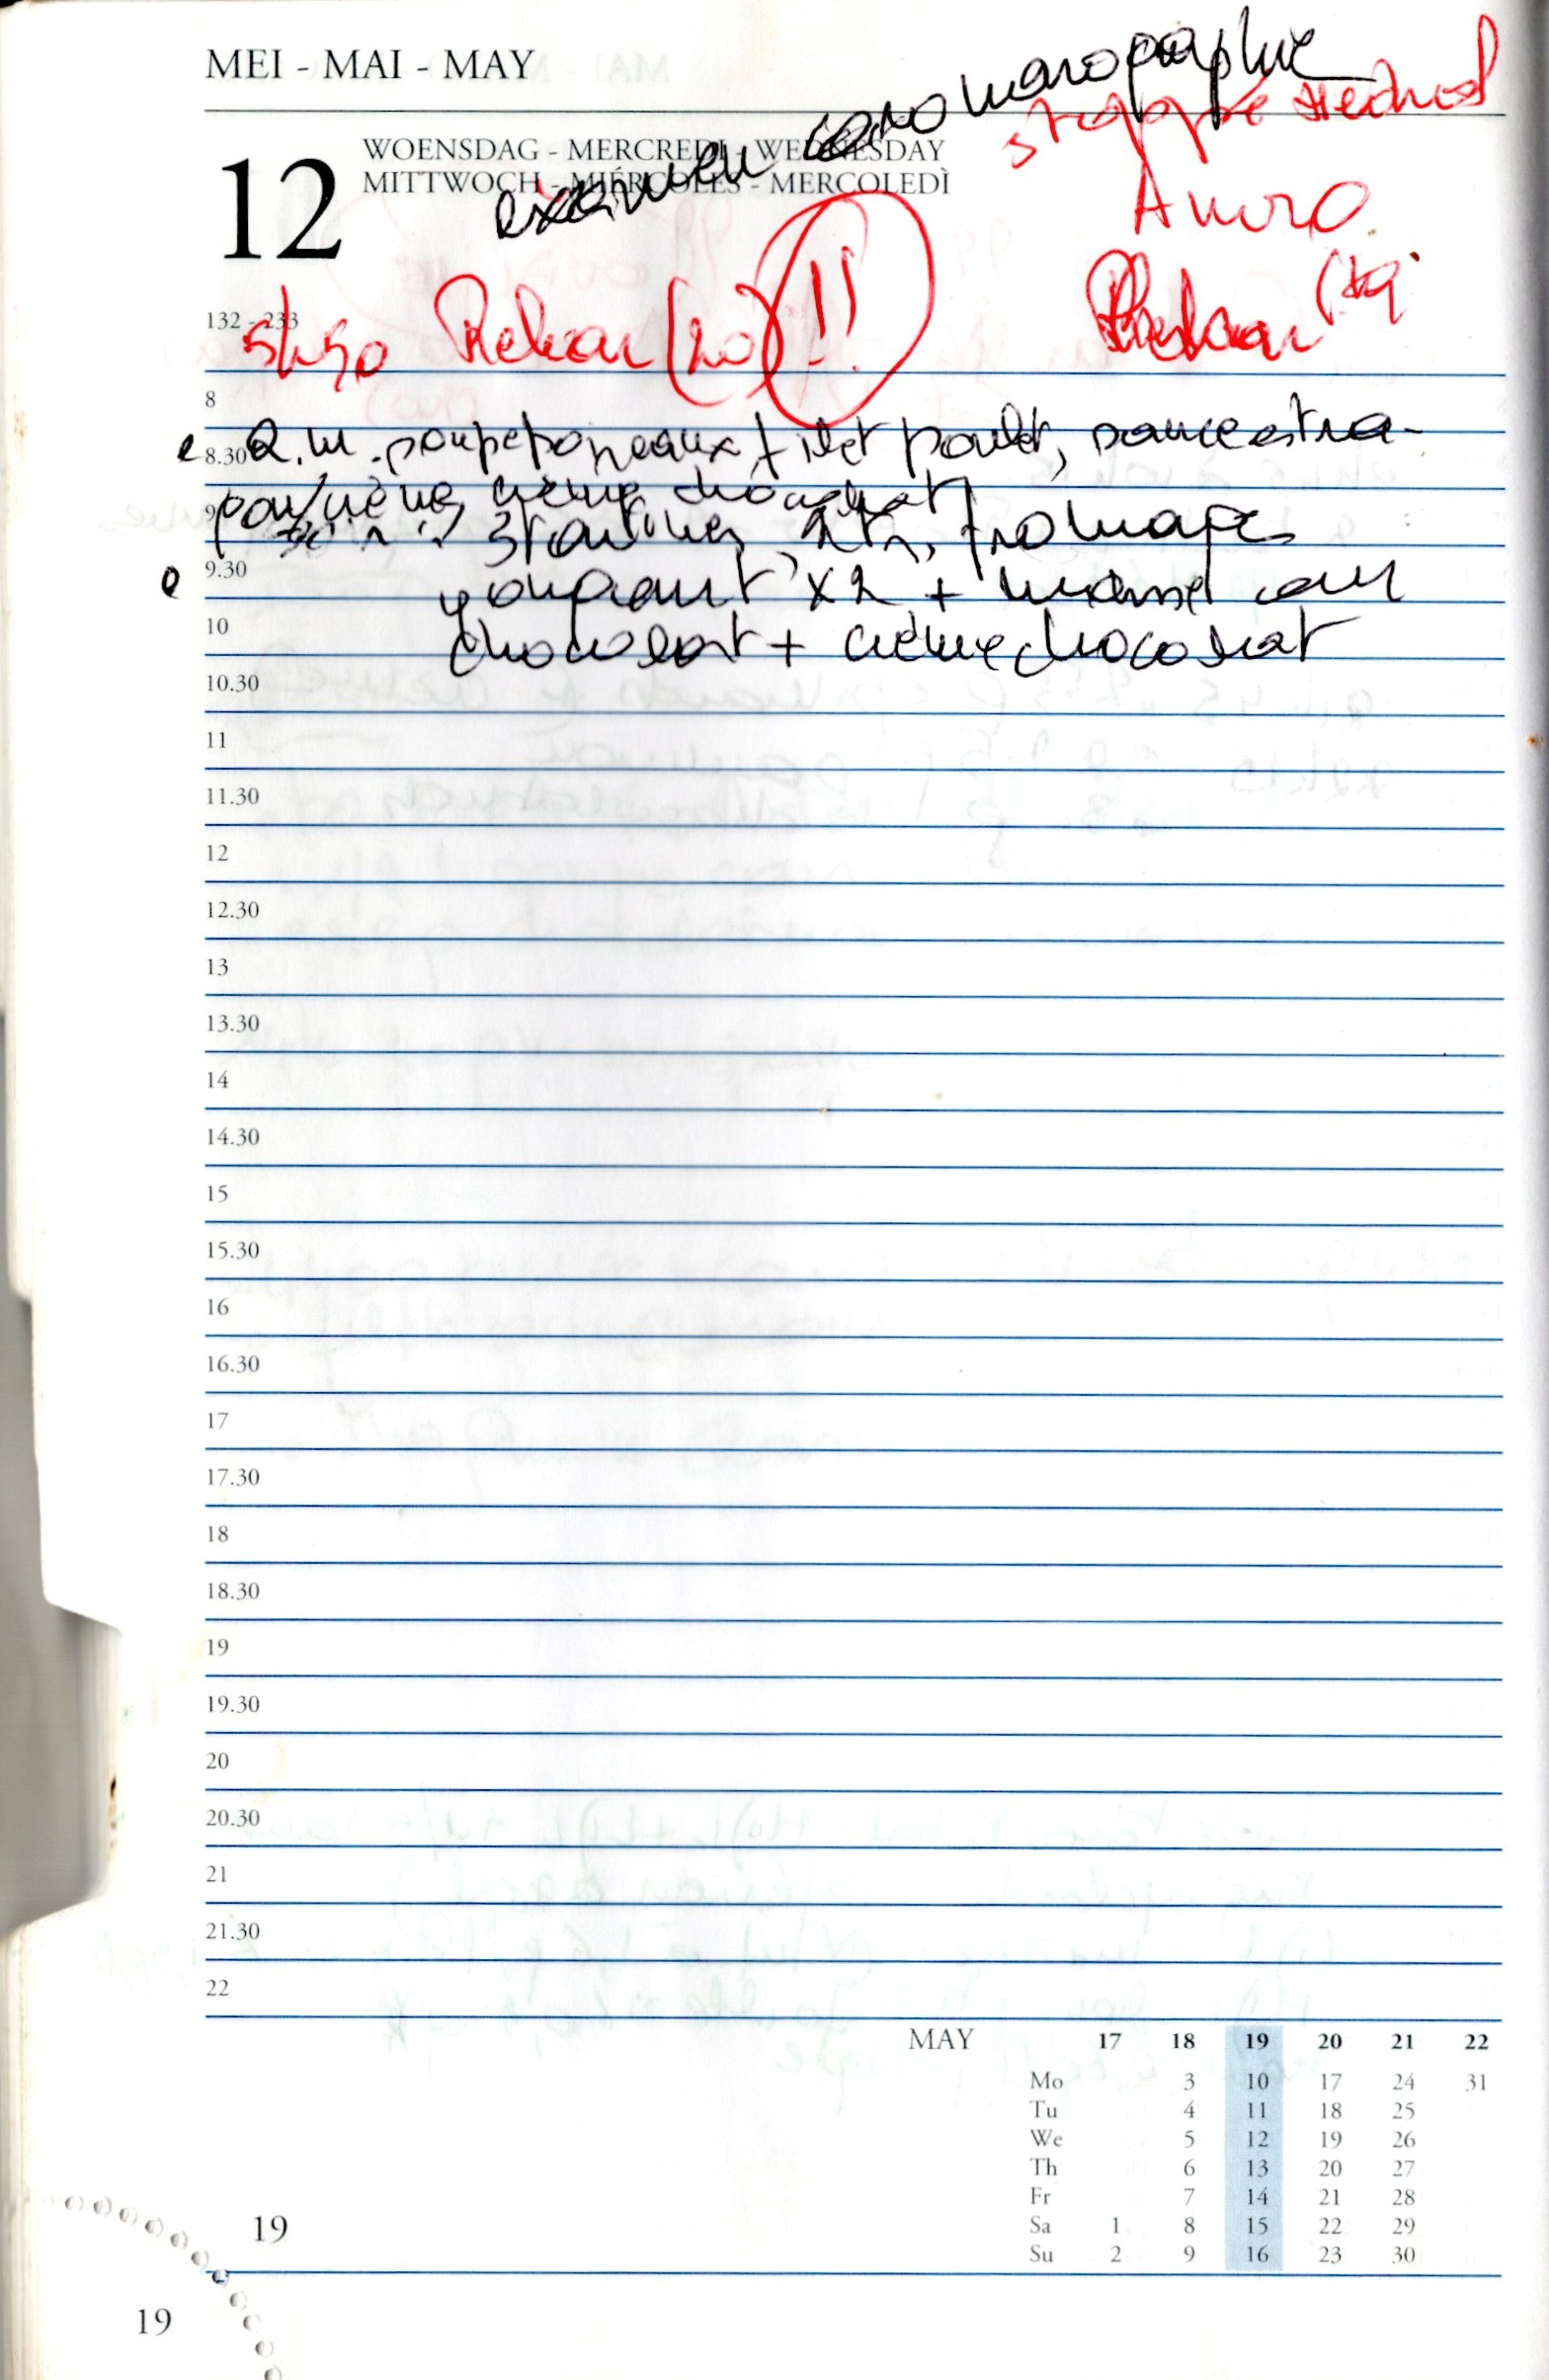 MEI - MAI - MAY
examen coronarographie
stoppé Medrol
Amiro
12
WOENSDAG - MERCREDI - WEDNESDAY
MITTWOCH - MIÉRCOLES - MERCOLEDÌ
132 - 233
5h50 Rekan (20) !!
Rekan
8
8.30 2. m. soupe poireaux, filet poulet, sauce estra-
9 gon, crème chocolat
soir : 3 tartines, fromages
9.30 yoghourt x2 + massé au
10 chocolat + crème chocolat
10.30
11
11.30
12
12.30
13
13.30
14
14.30
15
15.30
16
16.30
17
17.30
18
18.30
19
19.30
20
20.30
21
21.30
22
MAY 17 18 19 20 21 22
Mo 3 10 17 24 31
Tu 4 11 18 25
We 5 12 19 26
Th 6 13 20 27
Fr 7 14 21 28
Sa 1 8 15 22 29
Su 2 9 16 23 30
19
19